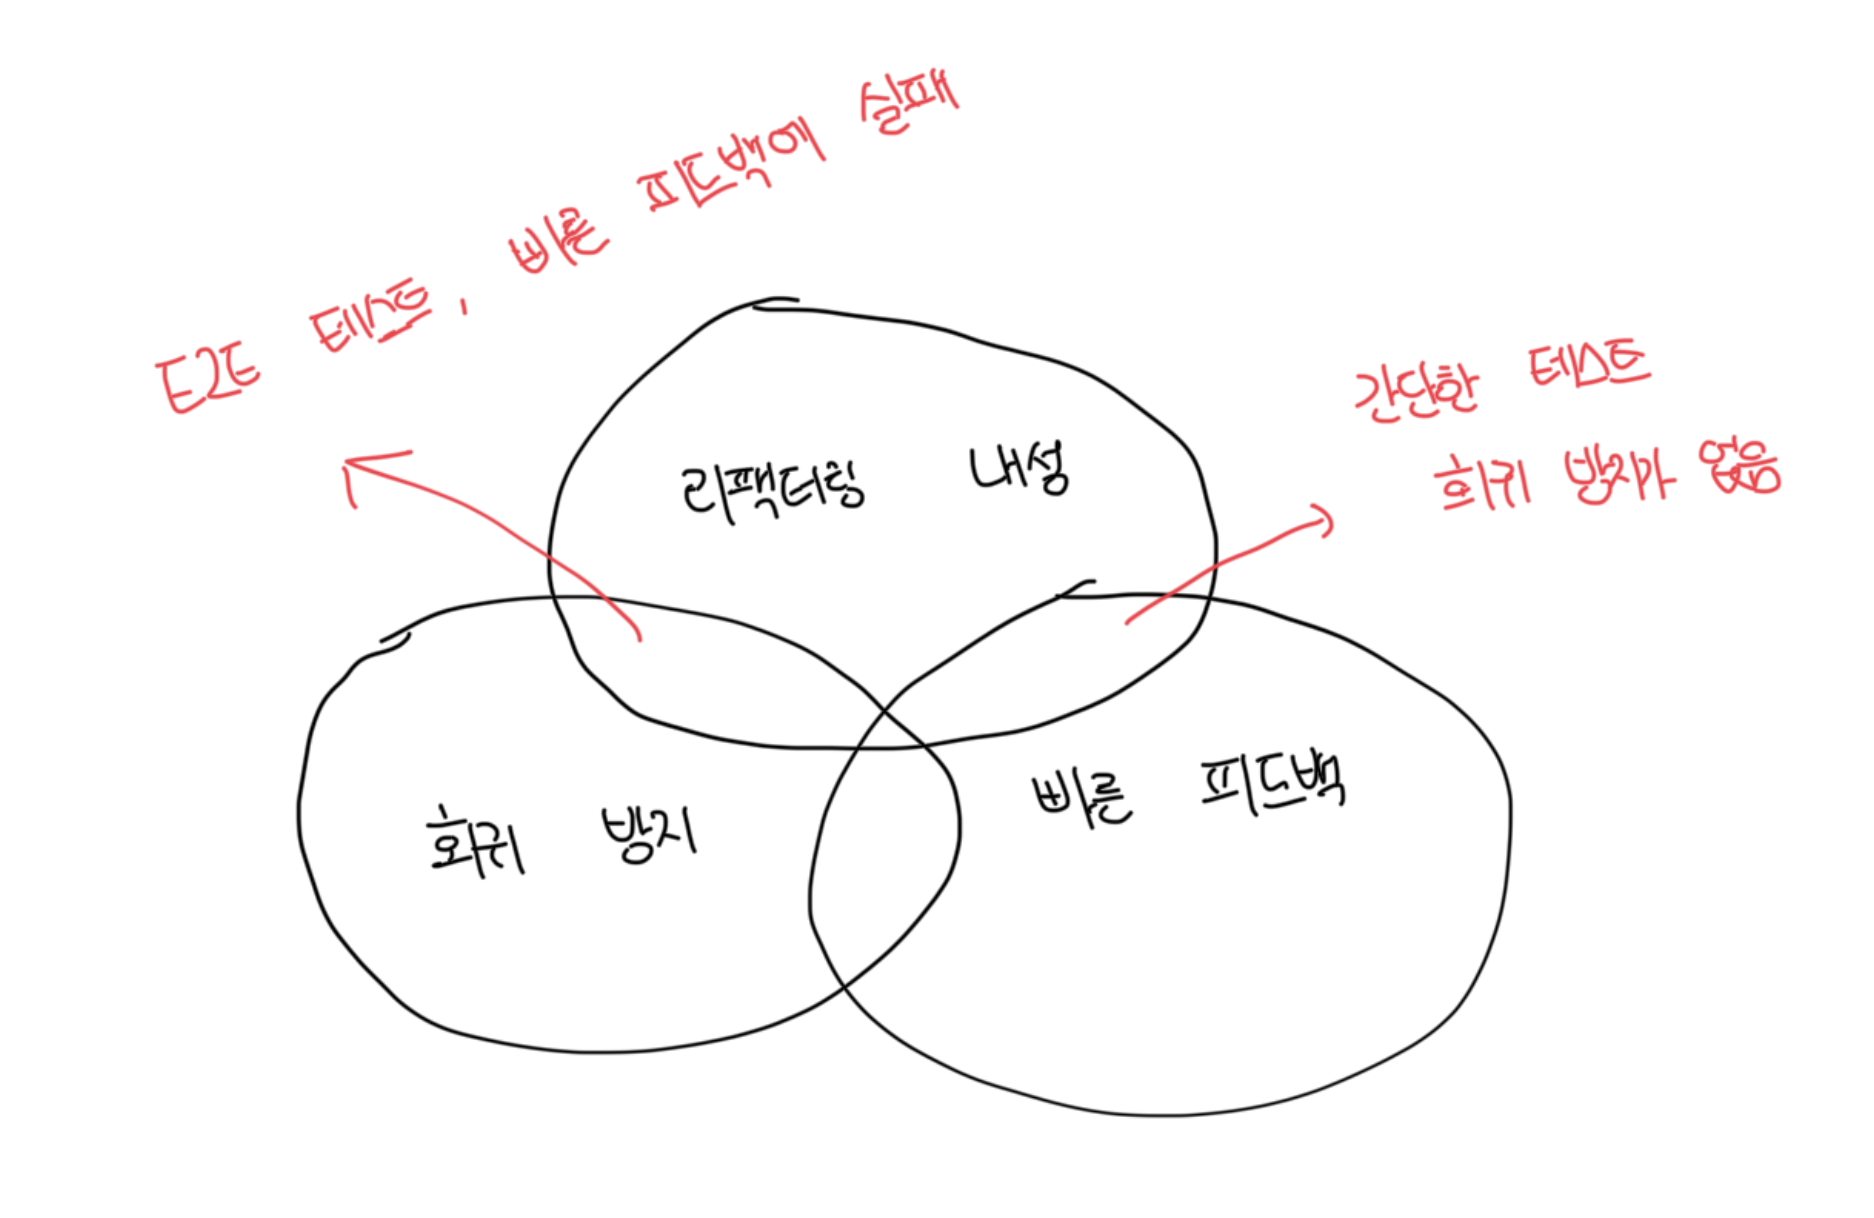 E2E 테스트, 빠른 피드백에 실패
간단한 테스트
회귀 방지가 없음
리팩터링 내성
회귀 방지
빠른 피드백